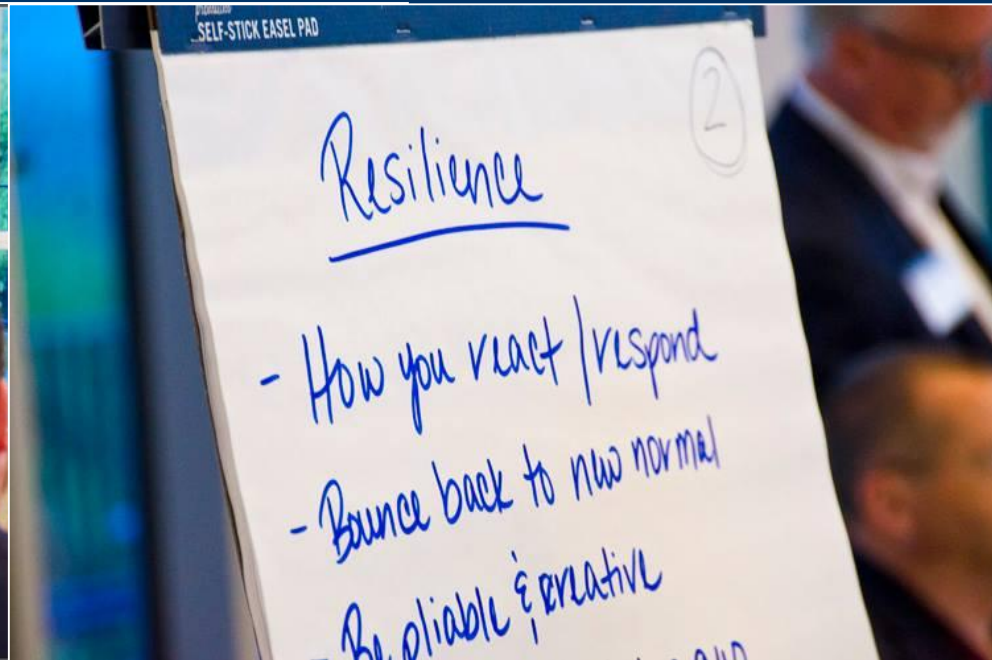 SELF-STICK EASEL PAD
2
Resilience
- How you react / respond
- Bounce back to new normal
- Be pliable & creative